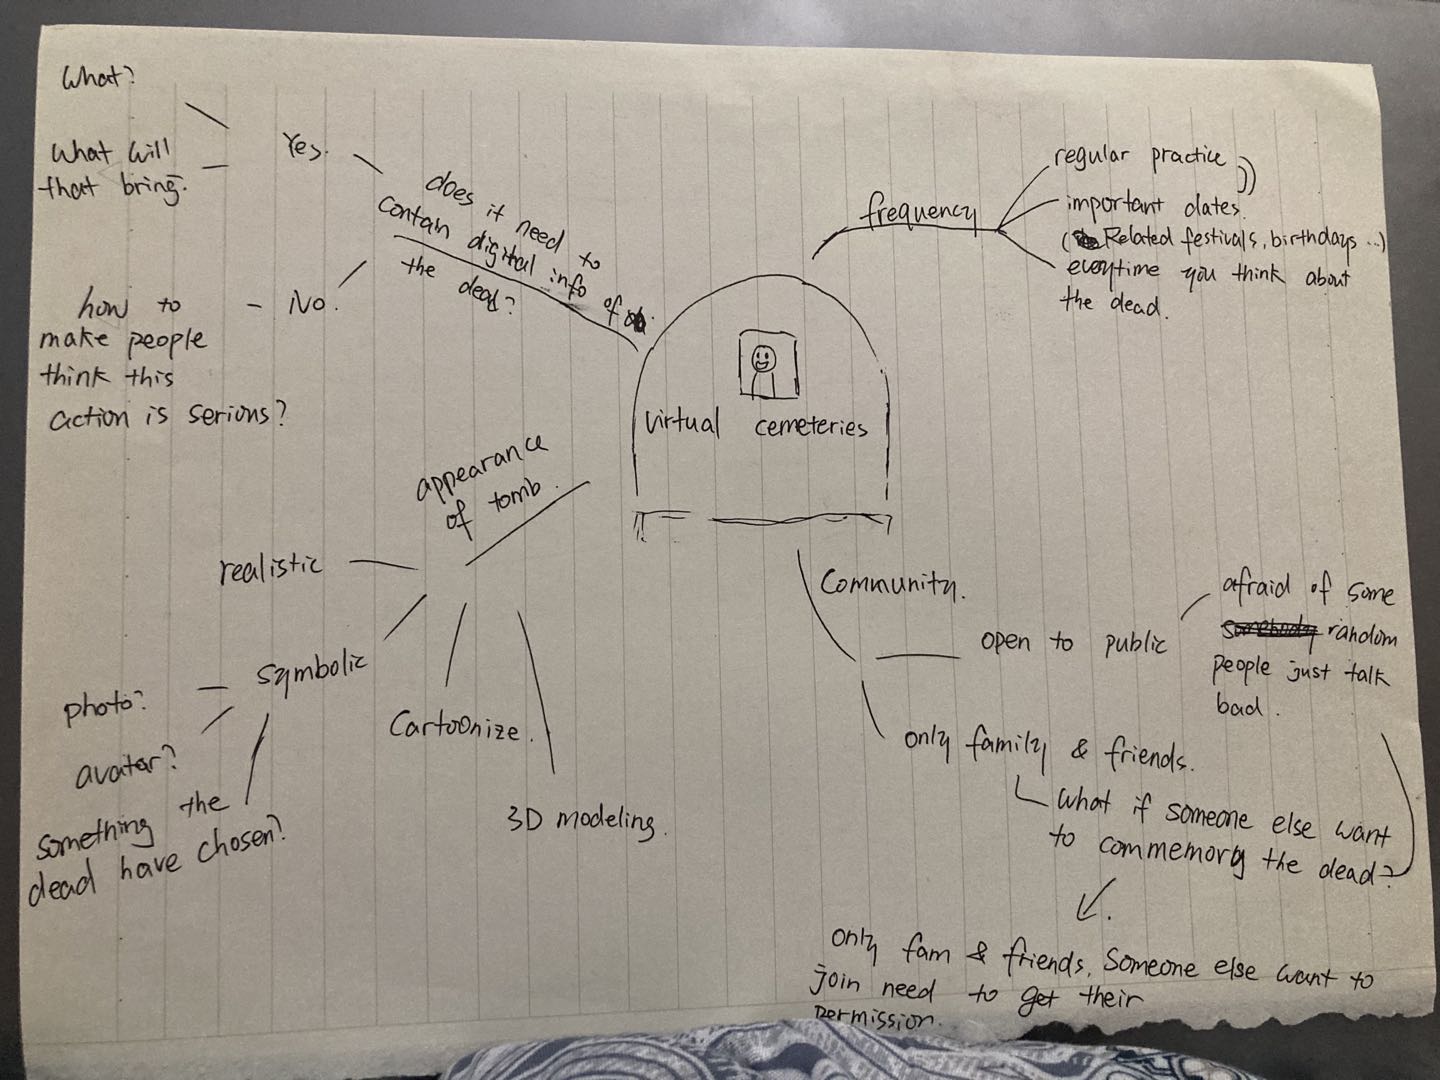 What?
What will
that bring.
Yes.
how to
make people
think this
action is serious?
No.
does it need to
contain digital info of
the dead?
frequency
regular practice
important dates.
(Related festivals, birthdays...)
everytime you think about
the dead.
virtual cemeteries
appearance
of tomb.
realistic
symbolic
photo?
avatar?
something the
dead have chosen?
Cartoonize.
3D modeling.
Community.
open to public
afraid of some
somebody random
people just talk
bad.
only family & friends.
What if someone else want
to commemory the dead?
only fam & friends. Someone else want to
join need to get their
permission.